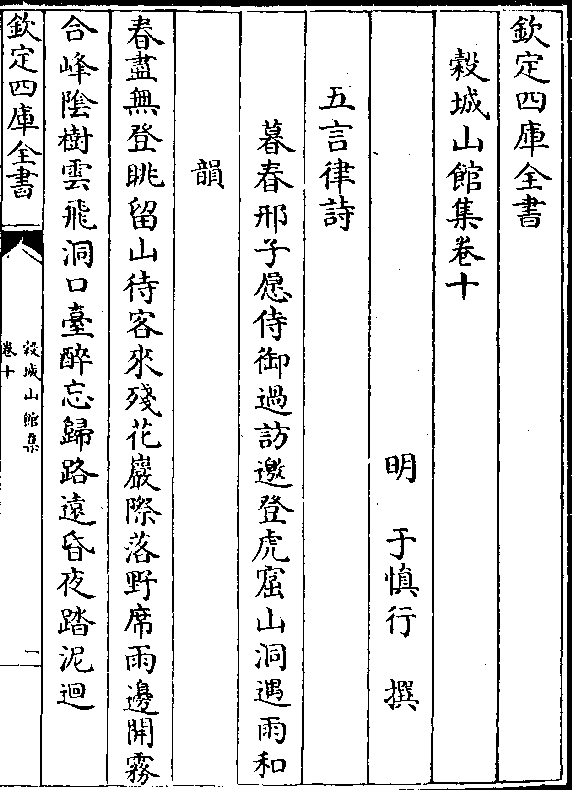 欽定四庫全書
穀城山館集卷十
明 于慎行 撰
五言律詩
暮春邢子愿侍御過訪邀登虎窟山洞遇雨和
韻
春盡無登眺留山待客來殘花巖際落野席雨邊開霧
合峰陰樹雲飛洞口臺醉忘歸路遠昏夜踏泥迴
欽定四庫全書
穀城山館集
卷十
一